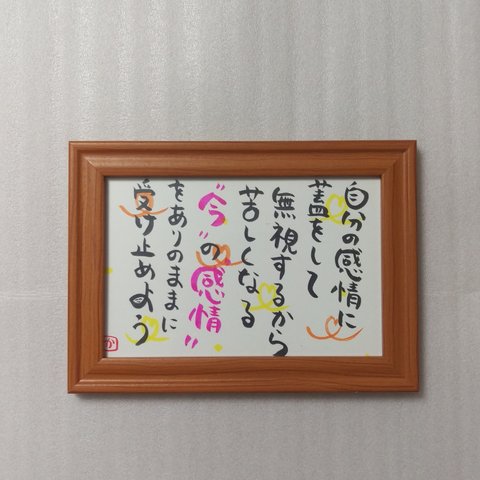 自分の感情に
蓋をして
無視するから
苦しくなる
“今”の“感情”
をありのままに
受け止めよう
か